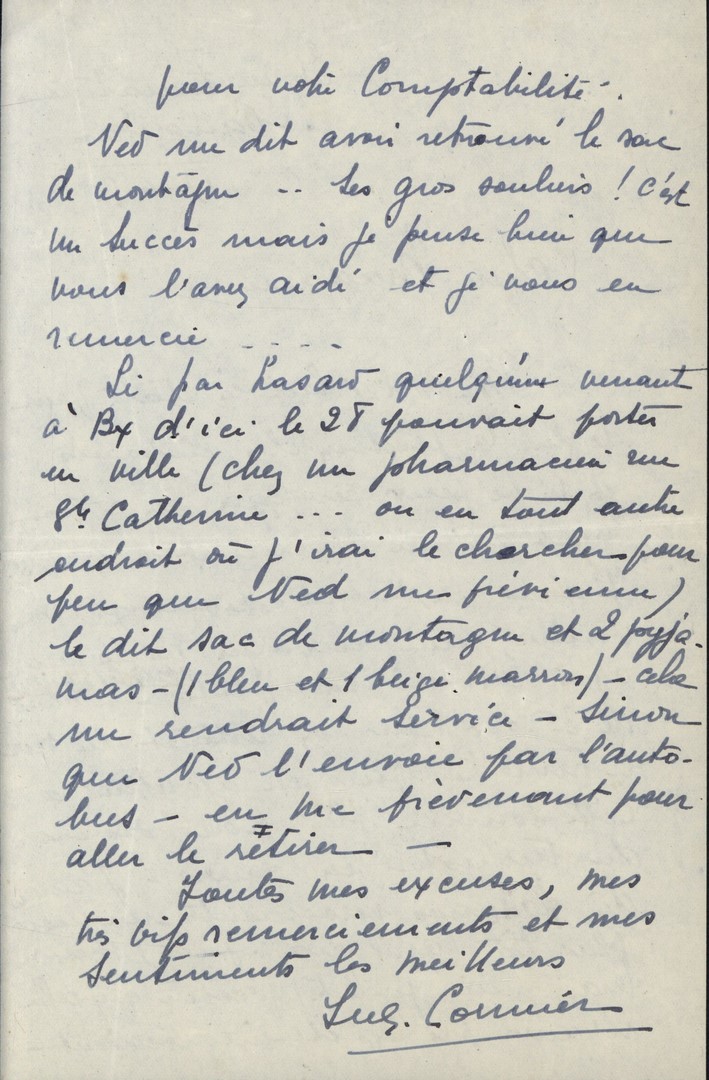 pour votre Comptabilité.
Ned me dit avoir retrouvé le sac
de montagne .. Ses gros souliers ! c'est
un succès mais je pense bien que
vous l'avez aidé et je vous en
remercie ....
Si par hasard quelqu'un venant
à Bx d'ici le 28 pouvait porter
en ville (chez un pharmacien rue
Ste Catherine ... ou en tout autre
endroit où j'irai le chercher pour
peu que Ned me prévienne)
le dit sac de montagne et 2 pyja-
mas - (1 bleu et 1 beige marron) - cela
me rendrait service - Sinon
que Ned l'envoie par l'auto-
bus - en me prévenant pour
aller le retirer -
Toutes mes excuses, mes
très vifs remerciements et mes
sentiments les meilleurs
Cormier